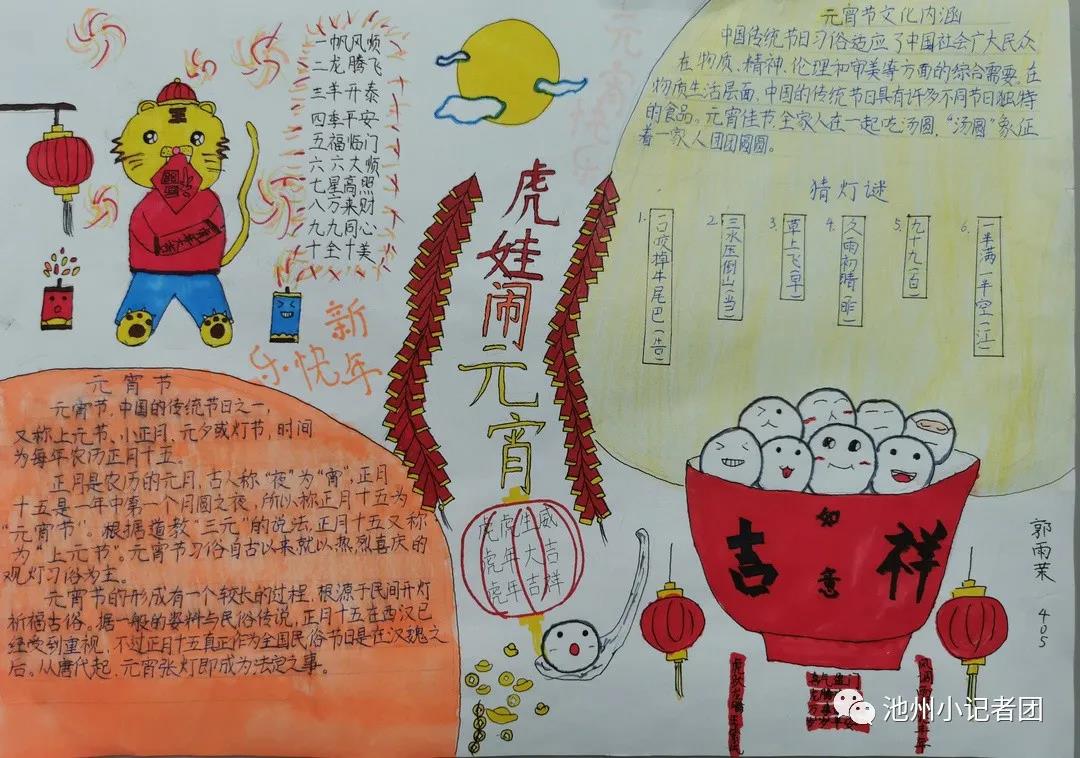 一帆风顺
二龙腾飞
三羊开泰
四季平安
五福临门
六六大顺
七星高照
八方来财
九九同心
十全十美
新
年快乐
虎娃闹元宵
元宵节
元宵节,中国的传统节日之一,
又称上元节、小正月、元夕或灯节,时间
为每年农历正月十五。
正月是农历的元月,古人称“夜”为“宵”,正月
十五是一年中第一个月圆之夜,所以称正月十五为
“元宵节”。根据道教“三元”的说法,正月十五又称
为“上元节”。元宵节习俗自古以来就以热烈喜庆的
观灯习俗为主。
元宵节的形成有一个较长的过程,根源于民间开灯
祈福古俗。据一般的资料与民俗传说,正月十五在西汉已
经受到重视,不过正月十五真正作为全国民俗节日是在汉魏之
后。从唐代起,元宵张灯即成为法定之事。
虎虎生威
虎年大吉
虎年吉祥
元宵快乐
元宵节文化内涵
中国传统节日习俗适应了中国社会广大民众
在物质、精神、伦理和审美等方面的综合需要,在
物质生活层面,中国的传统节日具有许多不同节日独特
的食品。元宵佳节,全家人在一起吃汤圆,“汤圆”象征
着一家人团团圆圆。
猜灯谜
1. 一口咬掉牛尾巴(告)
2. 三水压倒山(当)
3. 草上飞(早)
4. 久雨初晴(昨)
5. 九十九(百)
6. 一半满一半空(江)
吉祥
如意
郭雨茉 405
池州小记者团